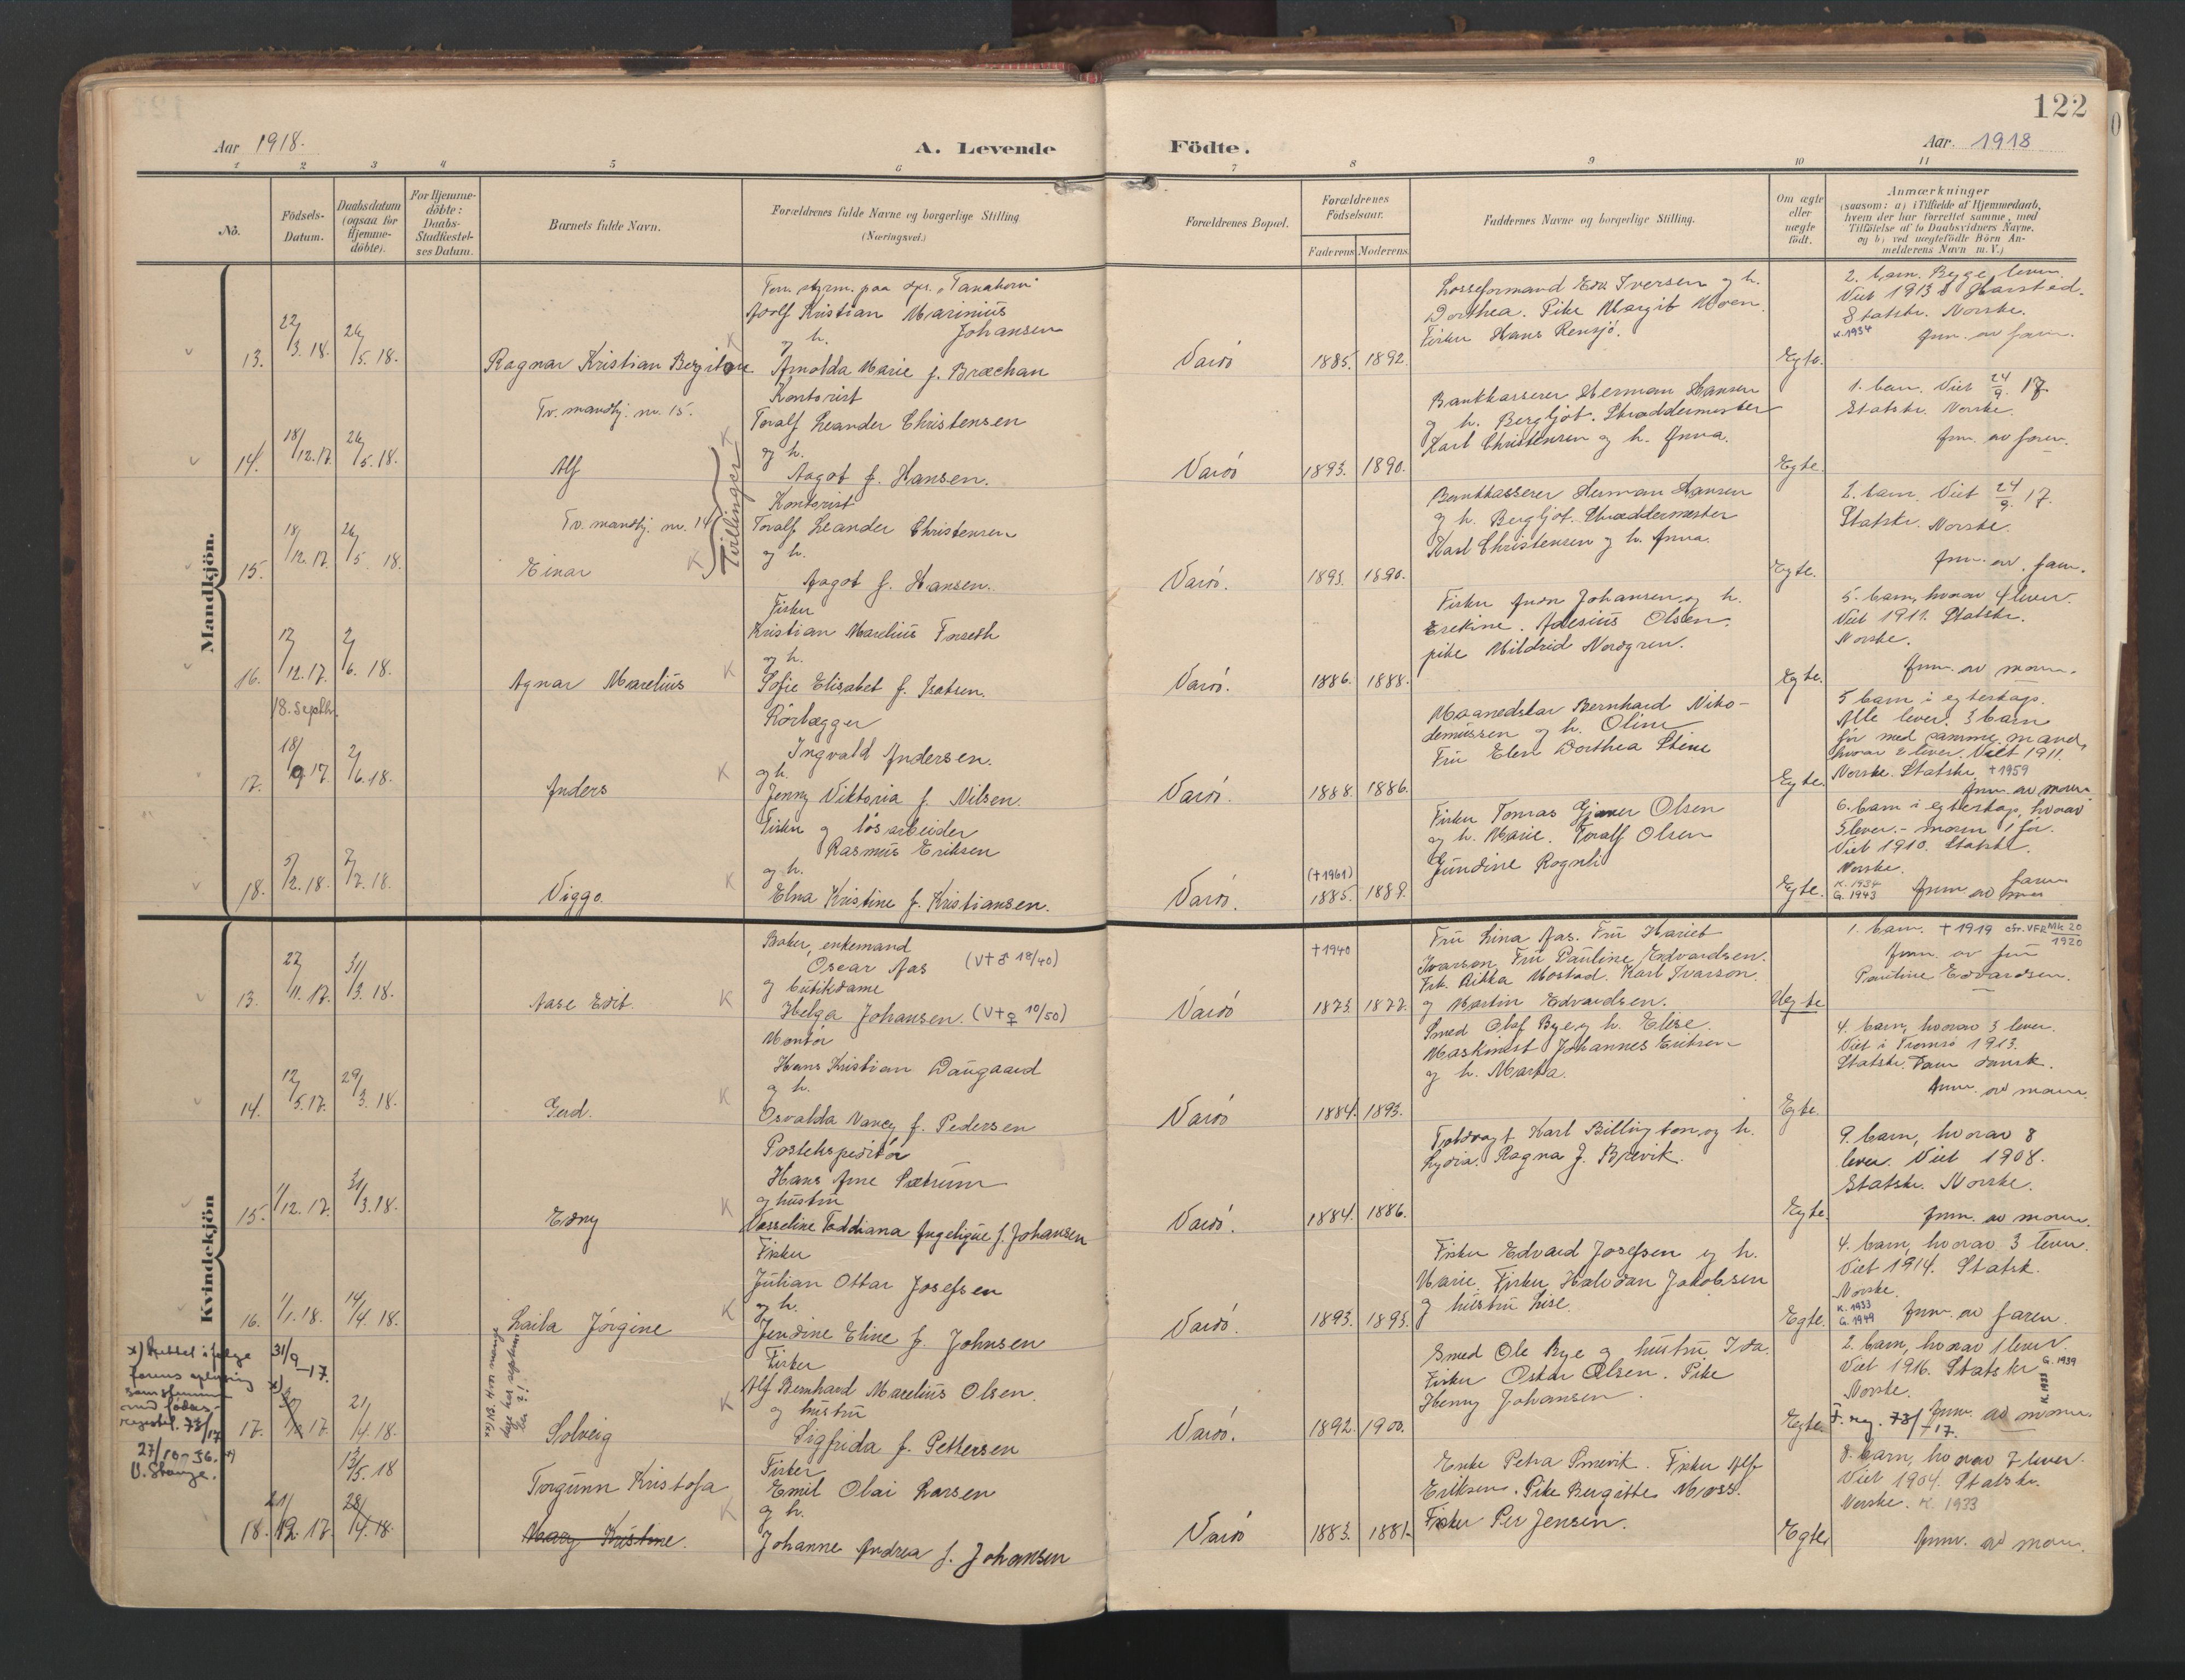 122
Aar 1918.
A. Levende
Födte.
Aar. 1918
1 2 3 4 5 6 7 8 9 10 11
No.
Födsels-
Datum.
Daabsdatum
(ogsaa for
Hjemme-
döbte).
For Hjemme-
döbte:
Daabs-
Stadfæstel-
ses Datum.
Barnets fulde Navn.
Forældrenes fulde Navne og borgerlige Stilling
(Næringsvei.)
Forældrenes Bopæl.
Forældrenes
Födselsaar.
Faderens Moderens
Faddernes Navne og borgerlige Stilling.
Om ægte
eller
uægte
födt.
Anmærkninger
(saasom: a) i Tilfælde af Hjemmedaab,
hvem der har forrettet samme, med
Tilföielse af to Daabsvidners Navne,
og b) ved uægtefödte Börn An-
melderens Navn m. V.)
Mandkjön.
13. 22/3. 18. 26/5. 18.
Ragnar Kristian Bergiton
styrm. paa "Tanahorn"
Adolf Kristian Marinius
Johansen
og h.
Arnolda Marie f. Brækhan
Vardö 1885. 1892
Losseformand Edv. Iversen og h.
Dorthea. Pike Margit Moen.
Fisker Hans Rensjö.
Egte.
2. barn. Begge lever.
Viet 1913 i Harstad.
Statskr. Norske.
K. 1934
Anm. av faren.
14. 18/12. 17. 26/5. 18.
Tv. mandkj. nr. 15.
Alf
Tvillinger
Kontorist
Toralf Leander Christensen
og h.
Aagot f. Hansen.
Vardö 1893. 1890.
Bankkasserer Herman Hansen
og h. Bergljot. Skræddermester
Karl Christensen og h. Anna.
Egte.
1. barn. Viet 24/9. 17.
Statskr. Norske.
Anm. av faren.
15. 18/12. 17. 26/5. 18.
Tv. mandkj. nr. 14
Einar
K
Kontorist
Toralf Leander Christensen
og h.
Aagot f. Hansen.
Vardö. 1893. 1890.
Bankkasserer Herman Hansen
og h. Bergljot. Skræddermester
Karl Christensen og h. Anna.
Egte.
2. barn. Viet 24/9. 17.
Statskr. Norske.
Anm. av. faren.
16. 12/12. 17. 2/6. 18.
Agnar Marelius
K
Fisker
Kristian Marelius Forseth
og h.
Sofie Elisabet f. Isaksen.
Vardö. 1886. 1888.
Fisker Johansen og h.
Olsen.
pike Mildrid Nordgren.
Egte.
5. barn, hvorav 4 lever.
Viet 1911. Statskr.
Norske.
Anm. av moren.
18. Septbr.
17. 18/9 17. 2/6. 18.
Anders
K
Rörlægger
Ingvald Andersen.
og h.
Jenny Viktoria f. Nilsen.
Vardö. 1888. 1886.
Maanedskar Bernhard Niko-
demussen og h. Oline
Fru Elen Dorthea Stene
Egte.
5 barn i egteskap.
Alle lever. 3 barn
för med samme mand,
hvorav 2 lever. Viet 1911.
Norske. Statskr. †1959
Anm. av moren
18. 5/2. 18. 7/7. 18.
Viggo.
K
Fisker og lösarbeider
Rasmus Eriksen
og h.
Elna Kristine f. Kristiansen.
Vardö. (†1961) 1885. 1889.
Fisker Tomas Gjæver Olsen
og h. Marie. Toralf Olsen
Jundine Rognli
Egte.
6. barn i egteskap, hvorav
5 lever. - moren 1 för.
Viet 1910. Statskr.
Norske.
K. 1934
G. 1943
Anm av faren
Kvindekjön
13. 27/11. 17. 31/3. 18.
Aase Edit.
K
Baker, enkemand
Oscar Aas (V† ♂ 18/40)
og butikdame
Helga Johansen. (V† ♀ 10/50)
Vardö †1940 1873. 1877.
Fru Lina Aas. Fru Hariet
Ivarson. Fru Pauline Edvardsen.
Frk. Rikka Mostad. Karl Ivarson
og Martin Edvardsen.
Uegte
1. barn. †1919 cfr. VFR Mk 20/1920
Anm. av fru
Pauline Edvardsen.
14. 12/5. 17. 29/3. 18.
Gerd.
K
Montör
Hans Kristian Daugaard
og h.
Osvalda Nancy f. Pedersen
Vardö 1884. 1893.
Smed Olaf Bye og h. Elise.
Maskinist Johannes Eriksen
og h. Marta.
Egte.
4. barn, hvorav 3 lever.
Viet i Tromsö 1913.
Statskr. Faren dansk.
Anm. av moren.
15. 1/12. 17. 31/3. 18.
Edny
K
Postekspeditör
Hans Arne Sætrum
og hustru
Vasseline Taddiana Angelique f. Johansen
Vardö. 1884. 1886.
Toldvagt Karl Billington, og h.
Lydia. Ragna J. Brevik.
Egte.
9. barn, hvorav 8
lever. Viet 1908.
Statskr. Norske.
Anm. av moren.
16. 1/1. 18. 14/4. 18.
Laila Jörgine
K
Fisker
Julian Ottar Josefsen
og h.
Jendine Eline f. Johnsen
Vardö. 1893. 1893.
Fisker Edvard Josefsen og h.
Marie. Fisker Halvdan Jakobsen
og hustru Lise.
Egte.
4. barn, hvorav 3 lever.
Viet 1914. Statsk.
Norske.
K. 1933
G. 1949
Anm. av faren.
x) Rettet i følge
farens oplysning
samstemmer
med fødsels-
registel. 73/17
27/10-36.
V. Stange.
31/9-17.
x)
17. 17. 21/4. 18.
Solveig
K
Fisker
Alf Bernhard Marelius Olsen.
og hustru
Sigfrida f. Pettersen
Vardö. 1892. 1900.
Smed Ole Bye og hustru Ida.
Fisker Oskar Olsen. Pike
Henny Johansen.
Egte.
2. barn, hvorav 1 lever.
Viet 1916. Statskr. G. 1939
Norske. K. 1933
F. reg. 73/17.
Anm. av moren.
13/5. 18
18. 21/12. 17. 28/4. 18.
Torgunn Kristofa
Mary Kristine.
K
Fisker
Emil Olai Larsen
og h.
Johanne Andrea f. Johansen
Vardö 1883. 1881.
Enke Petra Smevik. Fisker Alf
Eriksen. Pike Bergitte Moss.
Fisker Per Jensen.
Egte.
8. barn, hvorav 7 lever.
Viet 1904. Statskr.
Norske. K. 1933
Anm. av moren.